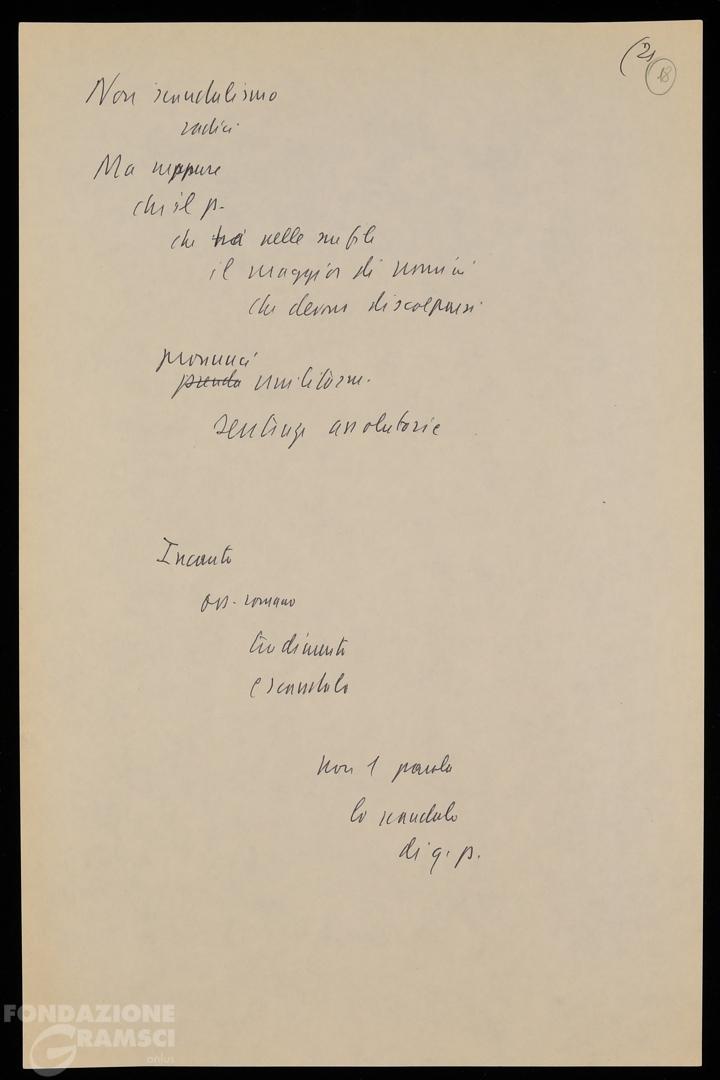 (21
18
Non scandalismo
radici
Ma neppure
che il p.
che ha nelle sue file
il maggior di nomin
che devono discolparsi
pronunci
prenda unilateralm.
sentenze assolutorie
Incauto
oss. romano
tradimento
e scandalo
non 1 parola
lo scandalo
di q. p.
FONDAZIONE
GRAMSCI
onlus